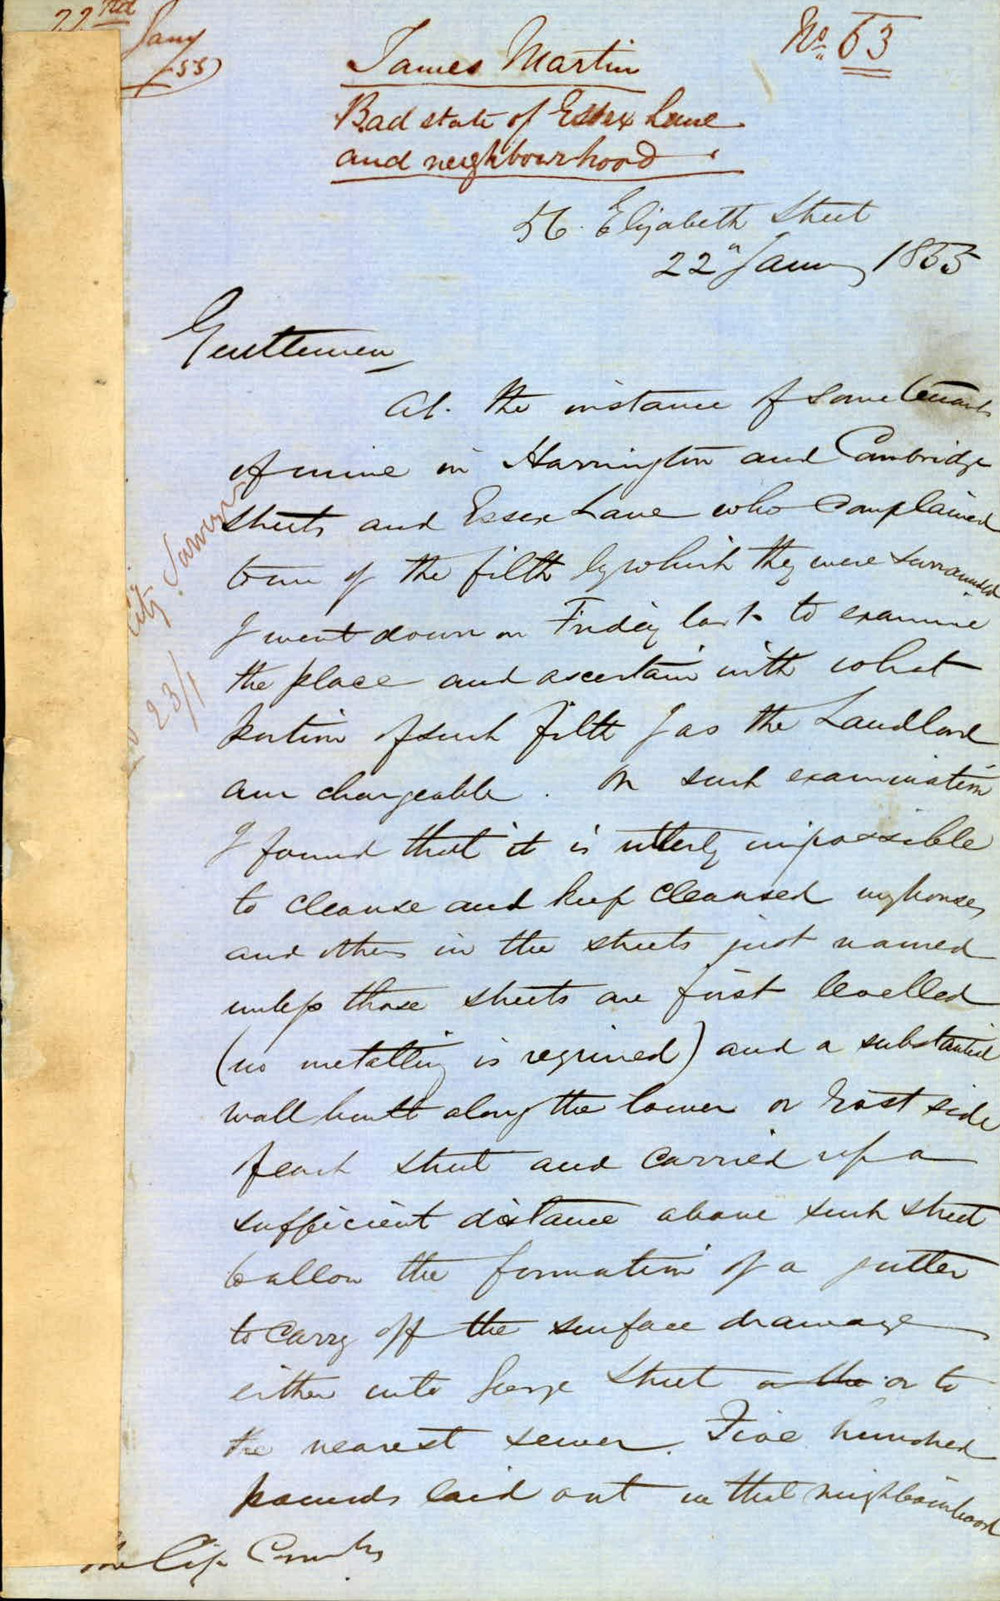 22nd Jany
/55
No. 53
James Martin
Bad state of Essex Lane
and neighbourhood.
56. Elizabeth Street
22d Jany 1855
Gentlemen,
At the instance of some tenants
of mine in Harrington and Cambridge
Streets and Essex Lane who complained
to me of the filth by which they were surrounded
I went down on Friday last to examine
the place and ascertain with what
portion of such filth I as the Landlord
am chargeable. On such examination
I found that it is utterly impossible
to cleanse and keep cleansed my houses
and others in the streets just named
unless those streets are first levelled
(no metalling is required) and a substantial
wall built along the lower or East side
of each street and carried up a
sufficient distance above such street
to allow the formation of a gutter
to carry off the surface drainage
either into George Street or the or to
the nearest sewer. Five hundred
pounds laid out in that neighbourhood
City Surveyor
23/1
The City Comrs